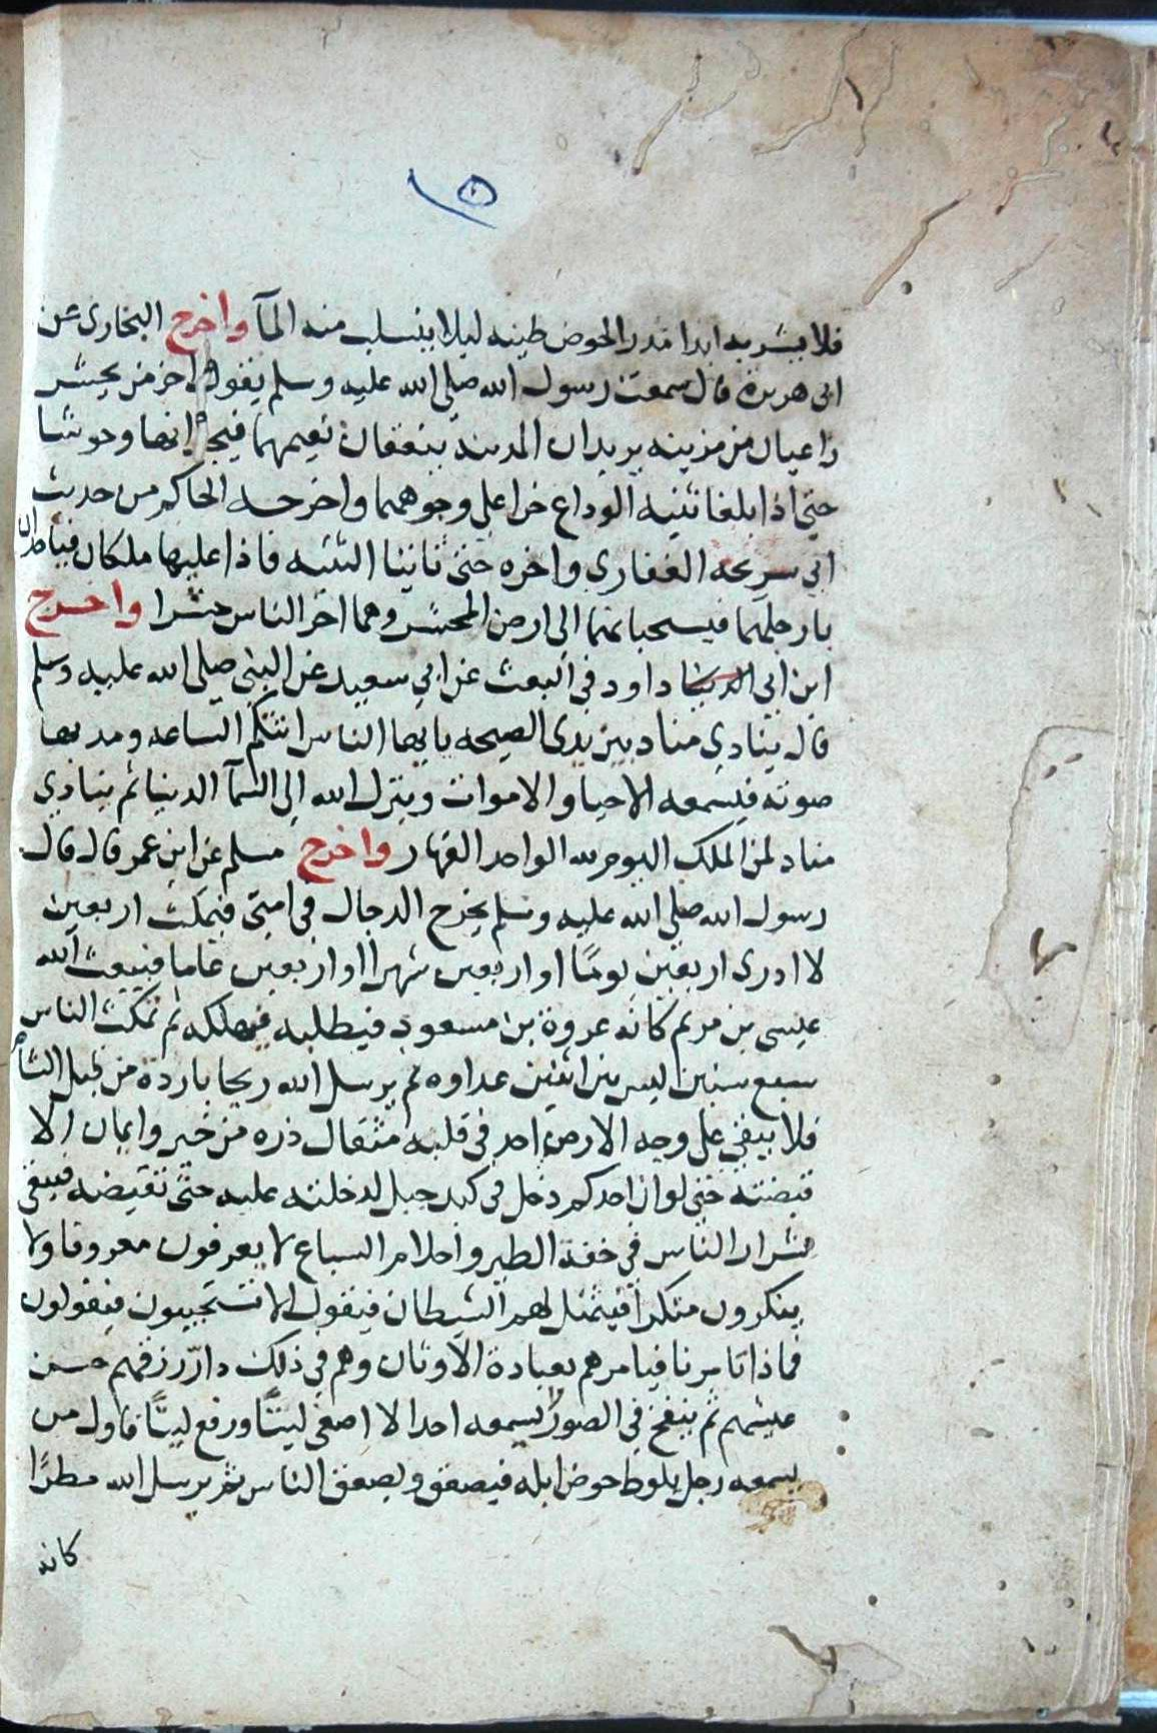 ١٥
فلا يشربه ابدا مدر الحوض طينه ليلا ينسلب منه المآ واخرج البخارى عن
ابى هريرة قال سمعت رسول الله صلى الله عليه وسلم يقول اخر من يحشر
راعيان من مزينه يريدان المدينة ينعقان بغنمهما فيجدانها وحوشا
حتى اذا بلغا ثنيه الوداع خرا على وجوههما واخرجه الحاكم من حديث
ابى سريحه الغفارى واخره حتى تاتينا الثنيه فاذا عليها ملكان فياخذان
بارجلهما فيسحبانهما الى ارض المحشر وهما اخر الناس حشرا واخرج
ابن ابى داود فى البعث عن ابى سعيد عن النبى صلى الله عليه وسلم
قال ينادى مناد بين يدى الصيحه يا ايها الناس اتتكم الساعه ومد بها
صوته فيسمعه الاحيا والاموات وينزل الله الى السمآ الدنيا ثم ينادى
مناد لمن الملك اليوم لله الواحد القهار واخرج مسلم عن ابن عمر قال قال
رسول الله صلى الله عليه وسلم يخرج الدجال فى امتى فيمكث اربعين
لا ادرى اربعين يومًا او اربعين شهرا او اربعين عاما فيبعث الله
عيسى بن مريم كانه عروة بن مسعود فيطلبه فيهلكه ثم تمكث الناس
سبع سنين ليس بين اثنين عداوه ثم يرسل الله ريحا باردة من قبل الشام
فلا يبقى على وجه الارض احد فى قلبه مثقال ذره من خير وايمان الا
قبضته حتى لو ان احدكم دخل فى كبد جبل لدخلته عليه حتى تقبضه فيبقى
شرار الناس فى خفة الطير واحلام السباع لا يعرفون معروفا ولا
ينكرون منكرا فيتمثل لهم الشيطان فيقول الا تستجيبون فيقولون
فماذا تامرنا فيامرهم بعبادة الاوثان وهم فى ذلك دارّ رزقهم حسن
عيشهم ثم ينفخ فى الصور لا يسمعه احدا الا اصغى ليتًا ورفع ليتًا فاول من
يسمعه رجل يلوط حوض ابله فيصعق ويصعق الناس ثم يرسل الله مطرًا
كانه